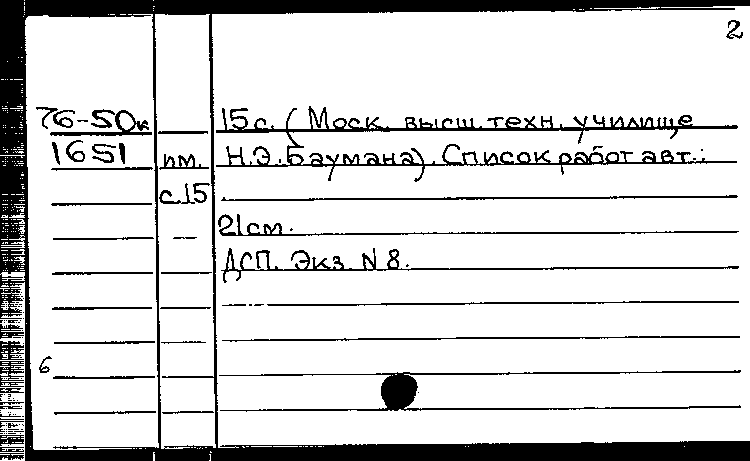 2
76-50к 15 с. (Моск. высш. техн. училище
1651 им. Н.Э. Баумана). Список работ авт.:
с. 15
21 см.
ДСП. Экз. N 8.
6